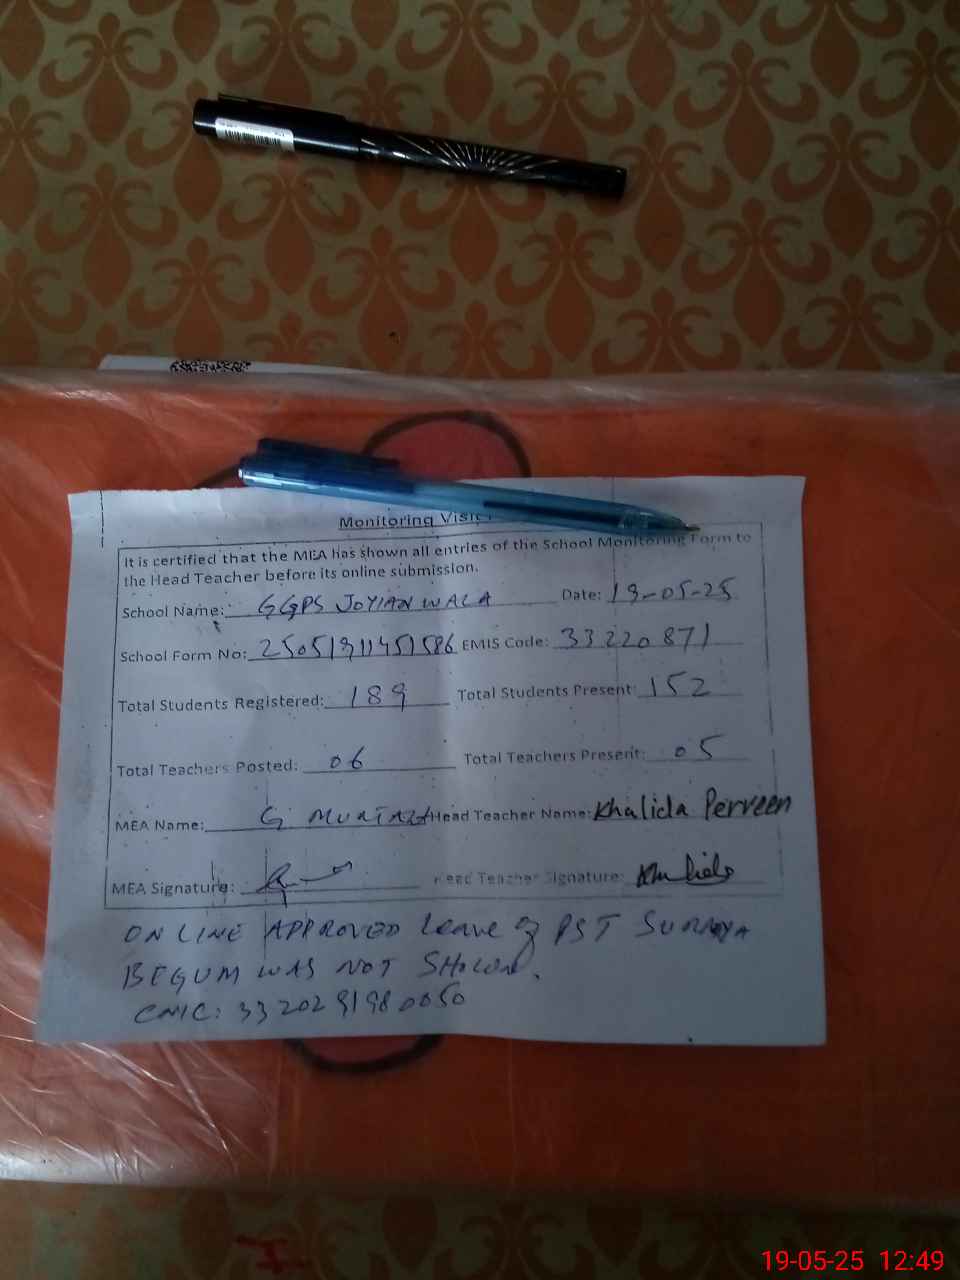 Monitoring Visit
It is certified that the MEA has shown all entries of the School Monitoring Form to
the Head Teacher before its online submission.
School Name: GGPS JOYIANWALA Date: 19-05-25
School Form No: 25051911451586 EMIS Code: 33220871
Total Students Registered: 189 Total Students Present: 152
Total Teachers Posted: 06 Total Teachers Present: 05
MEA Name: G MUMTAZ Head Teacher Name: Khalida Perveen
MEA Signature: Head Teacher Signature:
ONLINE APPROVED Leave of PST SURAYYA
BEGUM WAS NOT SHOWN.
CNIC: 3320291980050
19-05-25 12:49